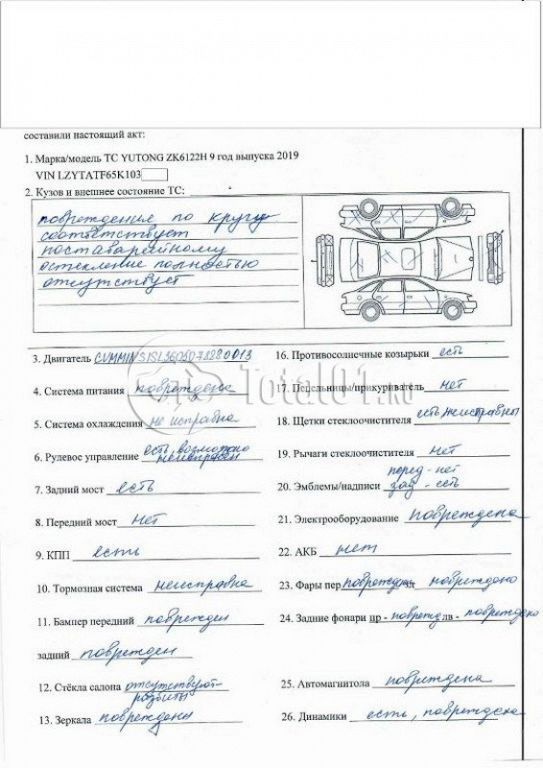 составили настоящий акт:
1. Марка/модель ТС YUTONG ZK6122H 9 год выпуска 2019
VIN LZYTATF65K103
2. Кузов и внешнее состояние ТС:
повреждения по кругу
соответствует
поставарейному
остекление полностью
отсутствует
3. Двигатель CUMMINSISL36030
4. Система питания повреждена
5. Система охлаждения не исправна
6. Рулевое управление есть, возможно
неисправен
7. Задний мост есть
8. Передний мост нет
9. КПП есть
10. Тормозная система неисправна
11. Бампер передний поврежден
задний поврежден
12. Стёкла салона отсутствуют-
разбиты
13. Зеркала повреждены
16. Противосолнечные козырьки есть
17. Пепельницы/прикуриватель нет
18. Щетки стеклоочистителя есть неисправны
19. Рычаги стеклоочистителя нет
20. Эмблемы/надписи перед - нет
зад - есть
21. Электрооборудование повреждена
22. АКБ нет
23. Фары пер повреждена повреждено
24. Задние фонари пр - поврежд лв - повреждено
25. Автомагнитола повреждена
26. Динамики есть, повреждена
Total01.ru